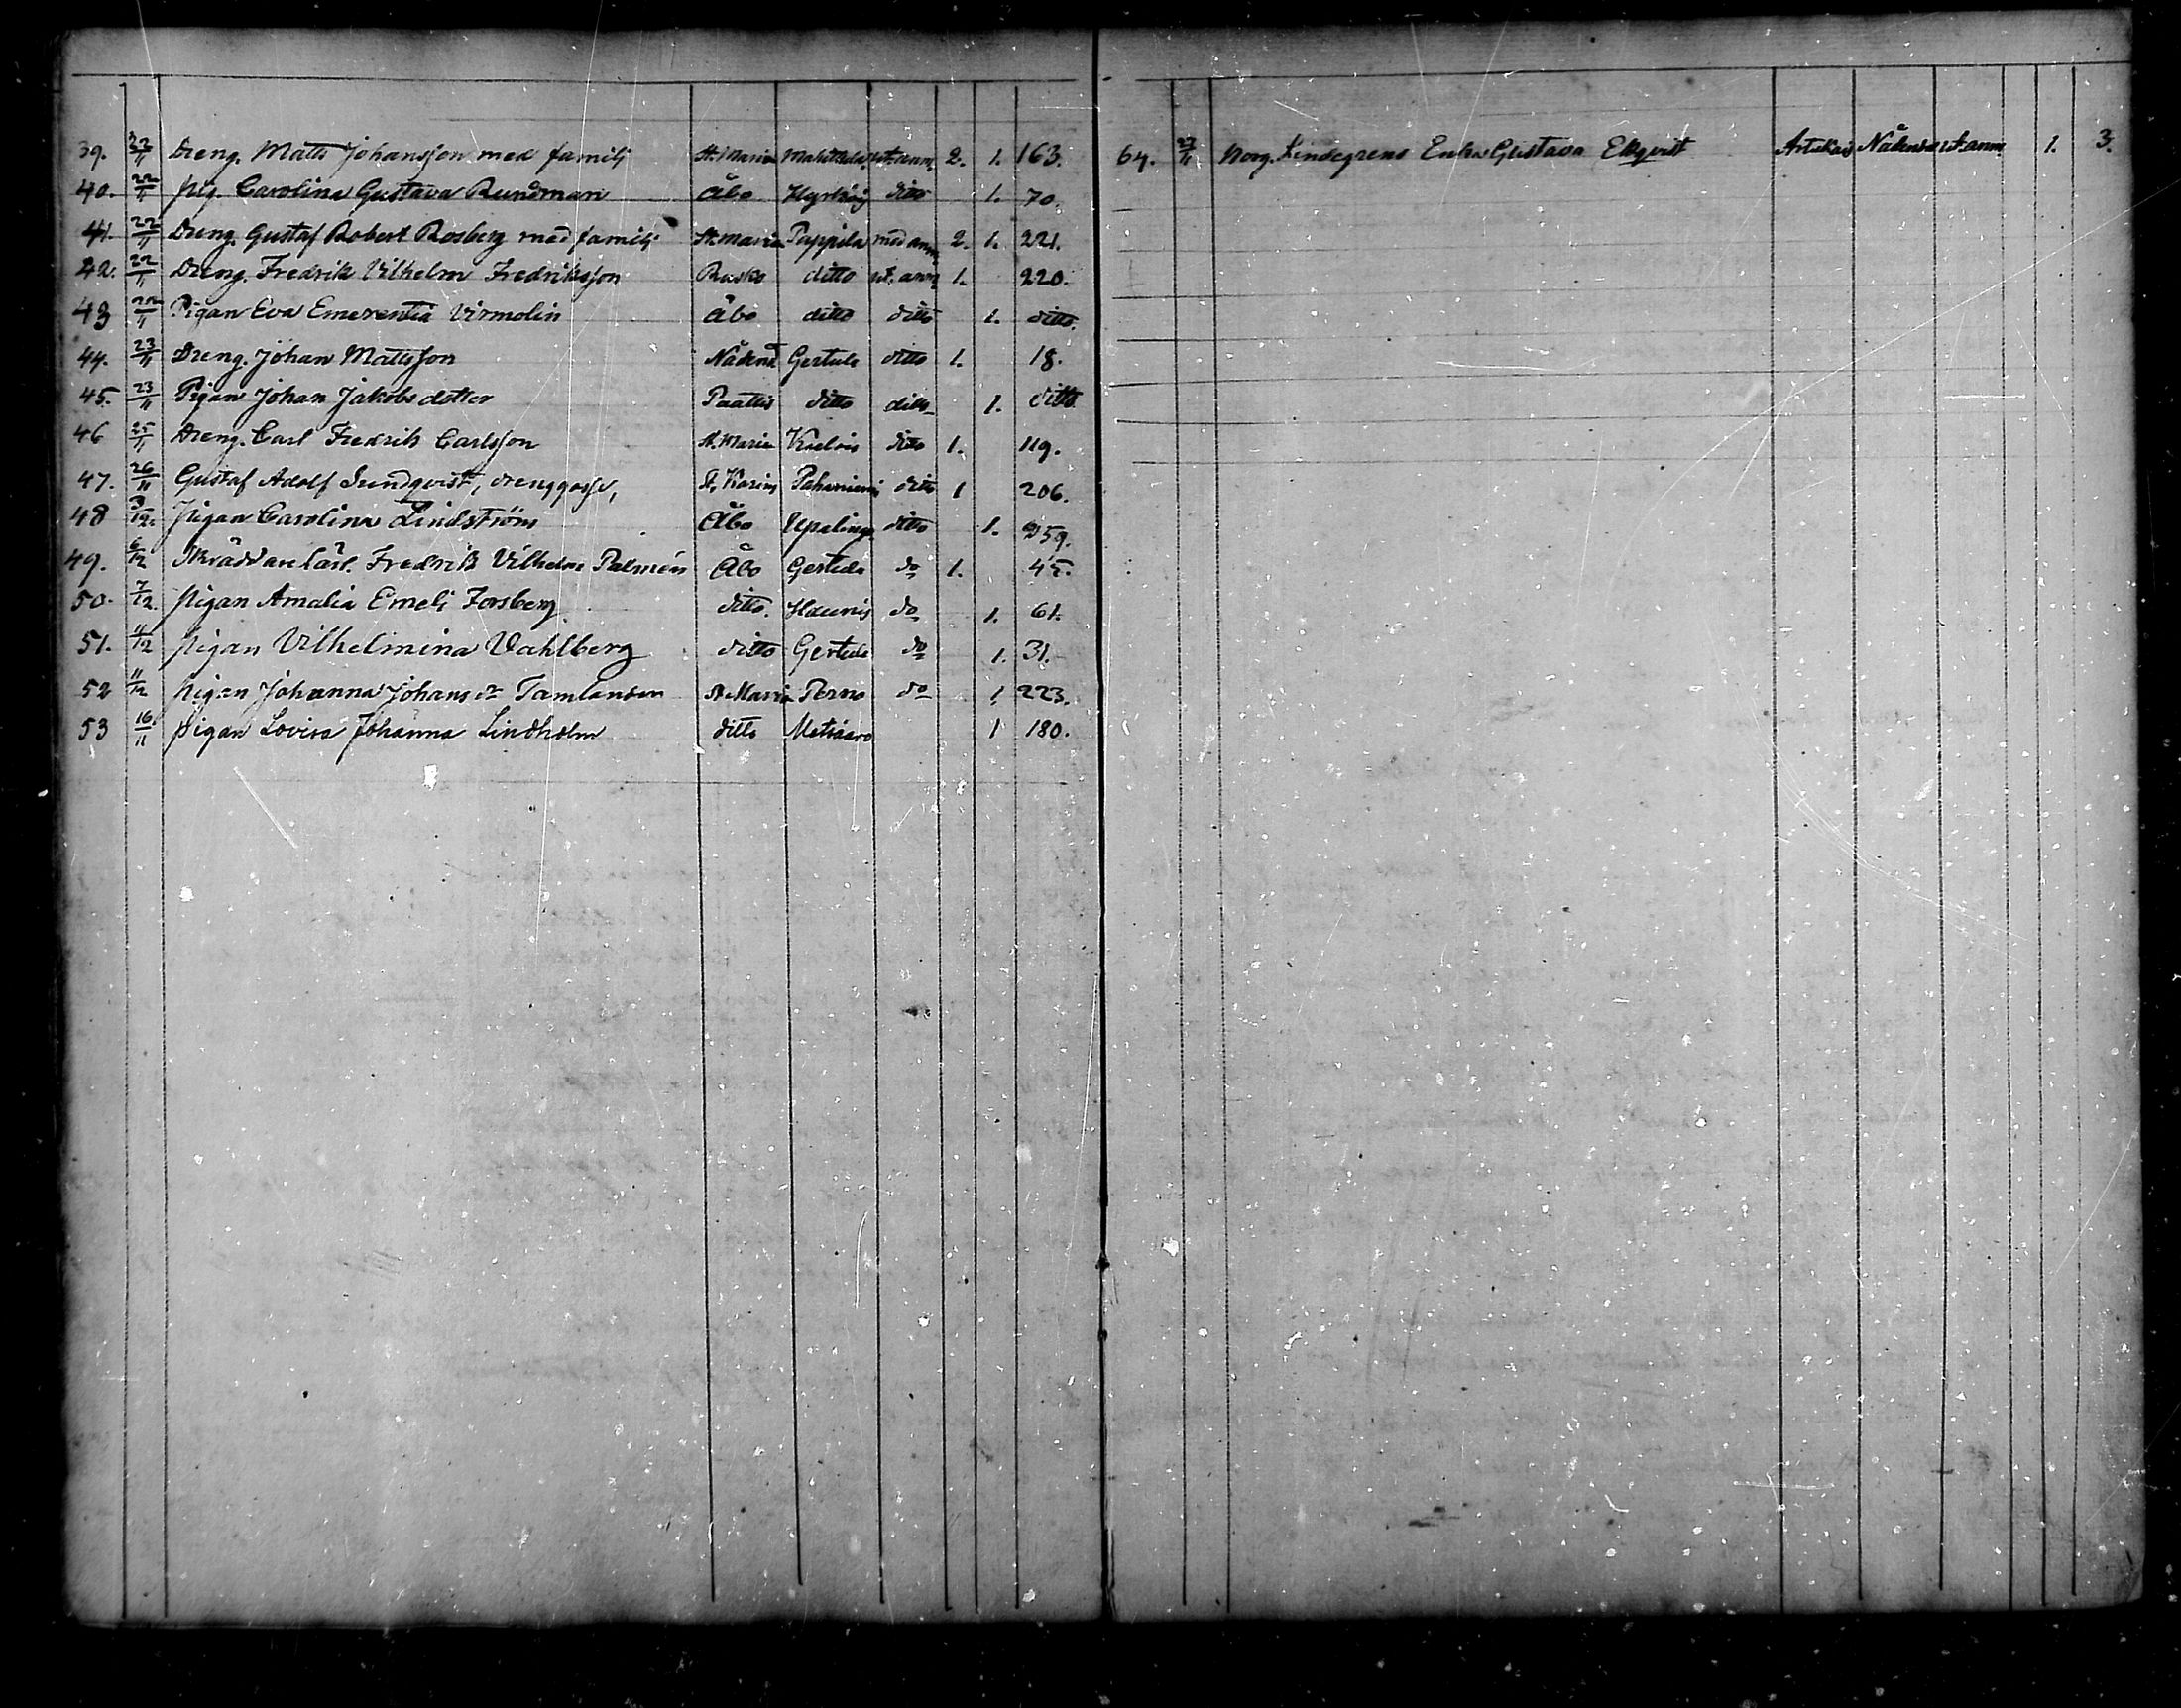 39. 22/11 Dreng. Matts Johansson med familj St. Maria utanm. 2. 1. 163.
40. 22/11 Pig. Carolina Gustava Rundman Åbo ditto 1. 70.
41. 22/11 Dreng. Gustaf Robert Rosberg med familj St. Maria Pappila med anm 2. 1. 221.
42. 22/11 Dreng. Fredrik Vilhelm Fredriksson Rusko ditto ut. anm 1. 220.
43 22/11 Pigan Eva Emerentia Virmolin Åbo ditto ditto 1. ditto.
44. 23/11 Dreng. Johan Mattsson Nådend Gertule ditto 1. 18.
45. 23/11 Pigan Johan Jakobsdotter Paattis ditto ditto 1. ditto
46 25/11 Dreng. Carl Fredrik Carlsson St. Maria ditto 1. 119.
47. 26/11 Gustaf Adolf Sundqvist, drenggosse, St. Karins Pahaniemi ditto 1 206.
48 3/12. Pigan Carolina Lindström Åbo ditto 1. 259.
49. 6/12 Skräddarelärl. Fredrik Vilhelm Palmén Åbo Gertule do 1. 45.
50. 7/12. Pigan Amalia Emeli Forsberg ditto. Haunis do 1. 61.
51. 11/12 Pigan Vilhelmina Vahlberg ditto Gertule do 1. 31.
52 11/12 Pigan Johanna Johansdr Tamlander St Maria Perno do 1 223.
53 16/11 Pigan Lovisa Johanna Lindholm ditto Metsäaro 1 180.
64. 27/11 Borg. Lindegrens Enka Gustava Ekqvist Artukais Nådend ut. anm 1. 3.